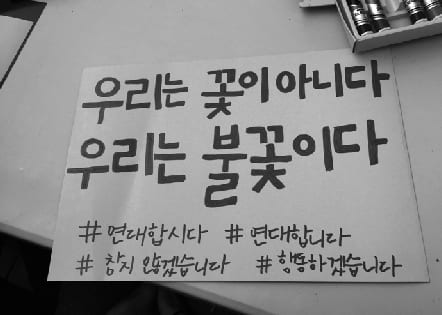 우리는 꽃이 아니다
우리는 불꽃이다
#연대합시다 #연대합니다
#참지 않겠습니다 #행동하겠습니다